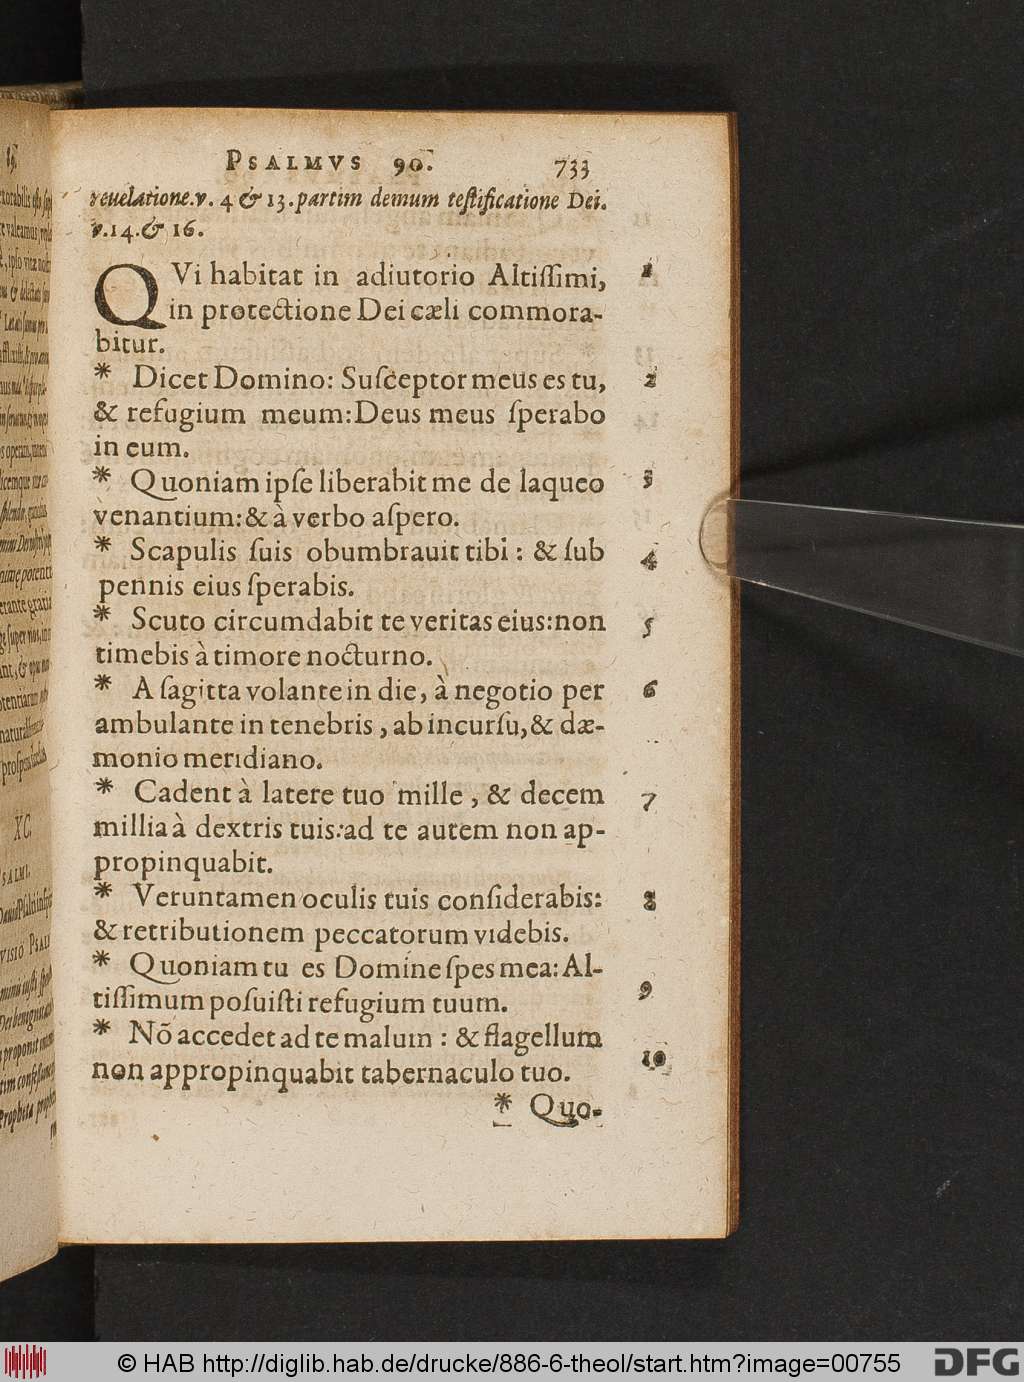 PSALMVS 90. 733
reuelatione.v. 4 & 13. partim demum testificatione Dei.
v.14.& 16.
QVi habitat in adiutorio Altiſſimi, 1
in protectione Dei cæli commora-
bitur.
* Dicet Domino: Suſceptor meus es tu, 2
& refugium meum: Deus meus ſperabo
in eum.
* Quoniam ipſe liberabit me de laqueo 3
venantium: & à verbo aſpero.
* Scapulis ſuis obumbrauit tibi : & ſub 4
pennis eius ſperabis.
* Scuto circumdabit te veritas eius: non 5
timebis à timore nocturno.
* A ſagitta volante in die, à negotio per 6
ambulante in tenebris, ab incurſu, & dæ-
monio meridiano.
* Cadent à latere tuo mille, & decem 7
millia à dextris tuis: ad te autem non ap-
propinquabit.
* Veruntamen oculis tuis conſiderabis: 8
& retributionem peccatorum videbis.
* Quoniam tu es Domine ſpes mea: Al- 9
tiſſimum poſuiſti refugium tuum.
* Nõ accedet ad te malum : & flagellum 10
non appropinquabit tabernaculo tuo.
* Quo-
© HAB http://diglib.hab.de/drucke/886-6-theol/start.htm?image=00755 DFG